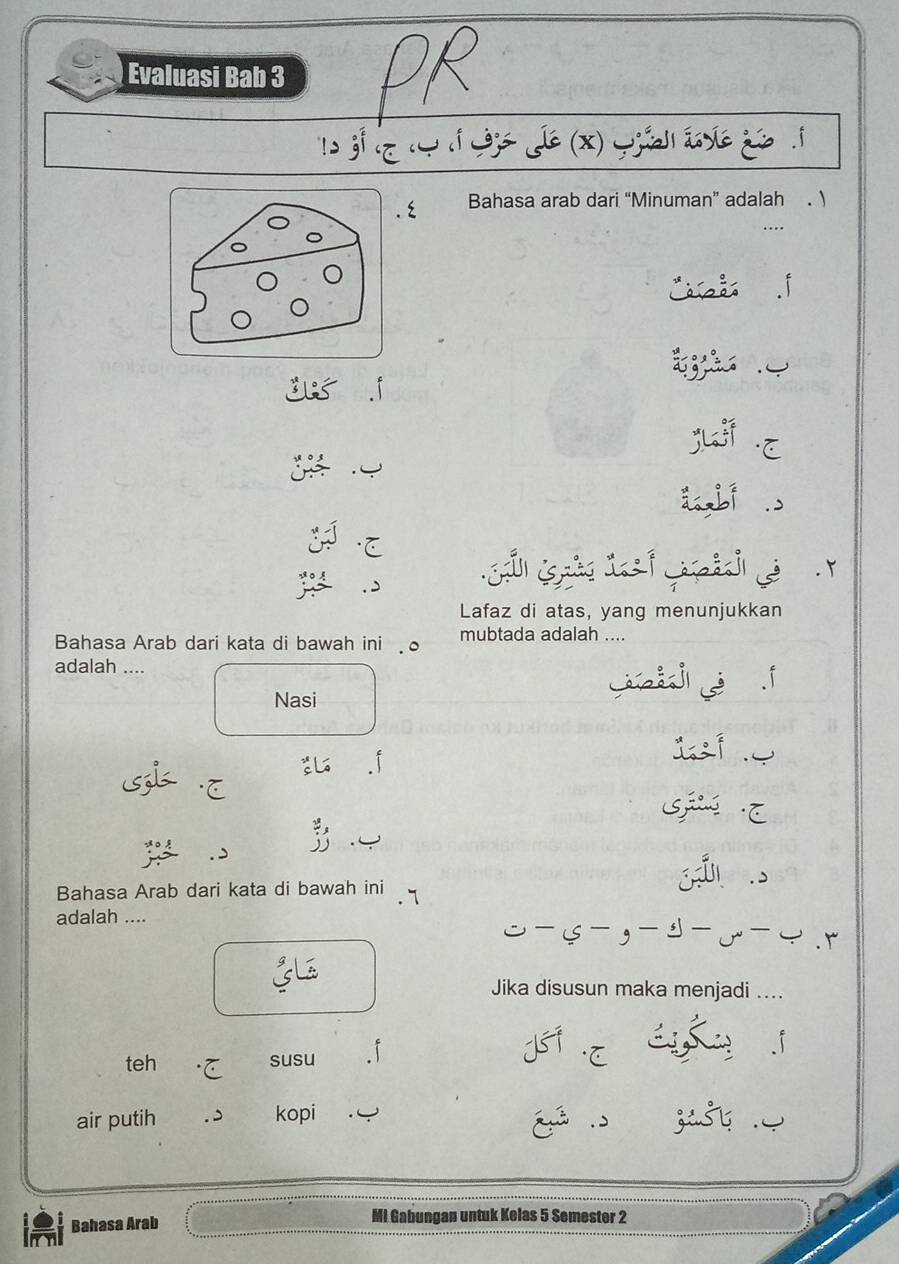 Evaluasi Bab 3
PR
أ. ضَعْ عَلَامَةَ الضَّرْبِ (X) عَلَى حَرْفِ أ، ب، ج، أَوْ د!
١. Bahasa arab dari “Minuman” adalah
....
أ. مَقْصَفٌ
ب. مَشْرُوْبَةٌ
ج. أَثْمَارٌ
د. أَطْعِمَةٌ
٢. فِي الْمَقْصَفِ أَحْمَدُ يَشْتَرِيْ اللَّبَنَ.
Lafaz di atas, yang menunjukkan
mubtada adalah ....
أ. فِي الْمَقْصَفِ
ب. أَحْمَدُ
ج. يَشْتَرِي
د. اللَّبَنَ
٣. ب – س – ك – و – ي – ت
Jika disusun maka menjadi ....
أ. بِسْكُوِيْتُ
ج. أَكَلَ
ب. بَاكْسُوْ
د. شَبِعَ
٤.
أ. كَعْكٌ
ب. جُبْنٌ
ج. لَبَنٌ
د. خُبْزٌ
٥. Bahasa Arab dari kata di bawah ini
adalah ....
Nasi
أ. مَاءٌ
ج. حَلْوَى
ب. رُزٌّ
د. خُبْزٌ
٦. Bahasa Arab dari kata di bawah ini
adalah ....
شَايٌ
أ. susu
ج. teh
ب. kopi
د. air putih
Bahasa Arab
MI Gabungan untuk Kelas 5 Semester 2